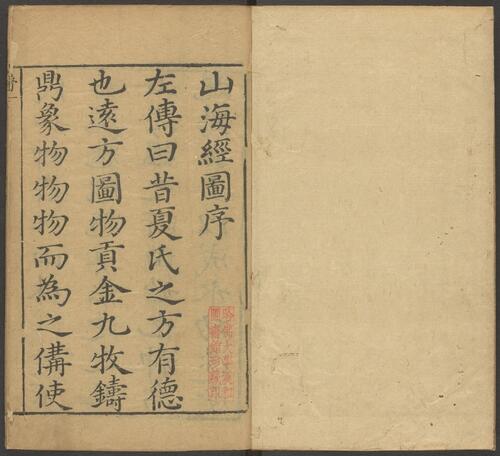 山海經圖序
左傳曰昔夏氏之方有德
也遠方圖物貢金九牧鑄
鼎象物物物而為之備使